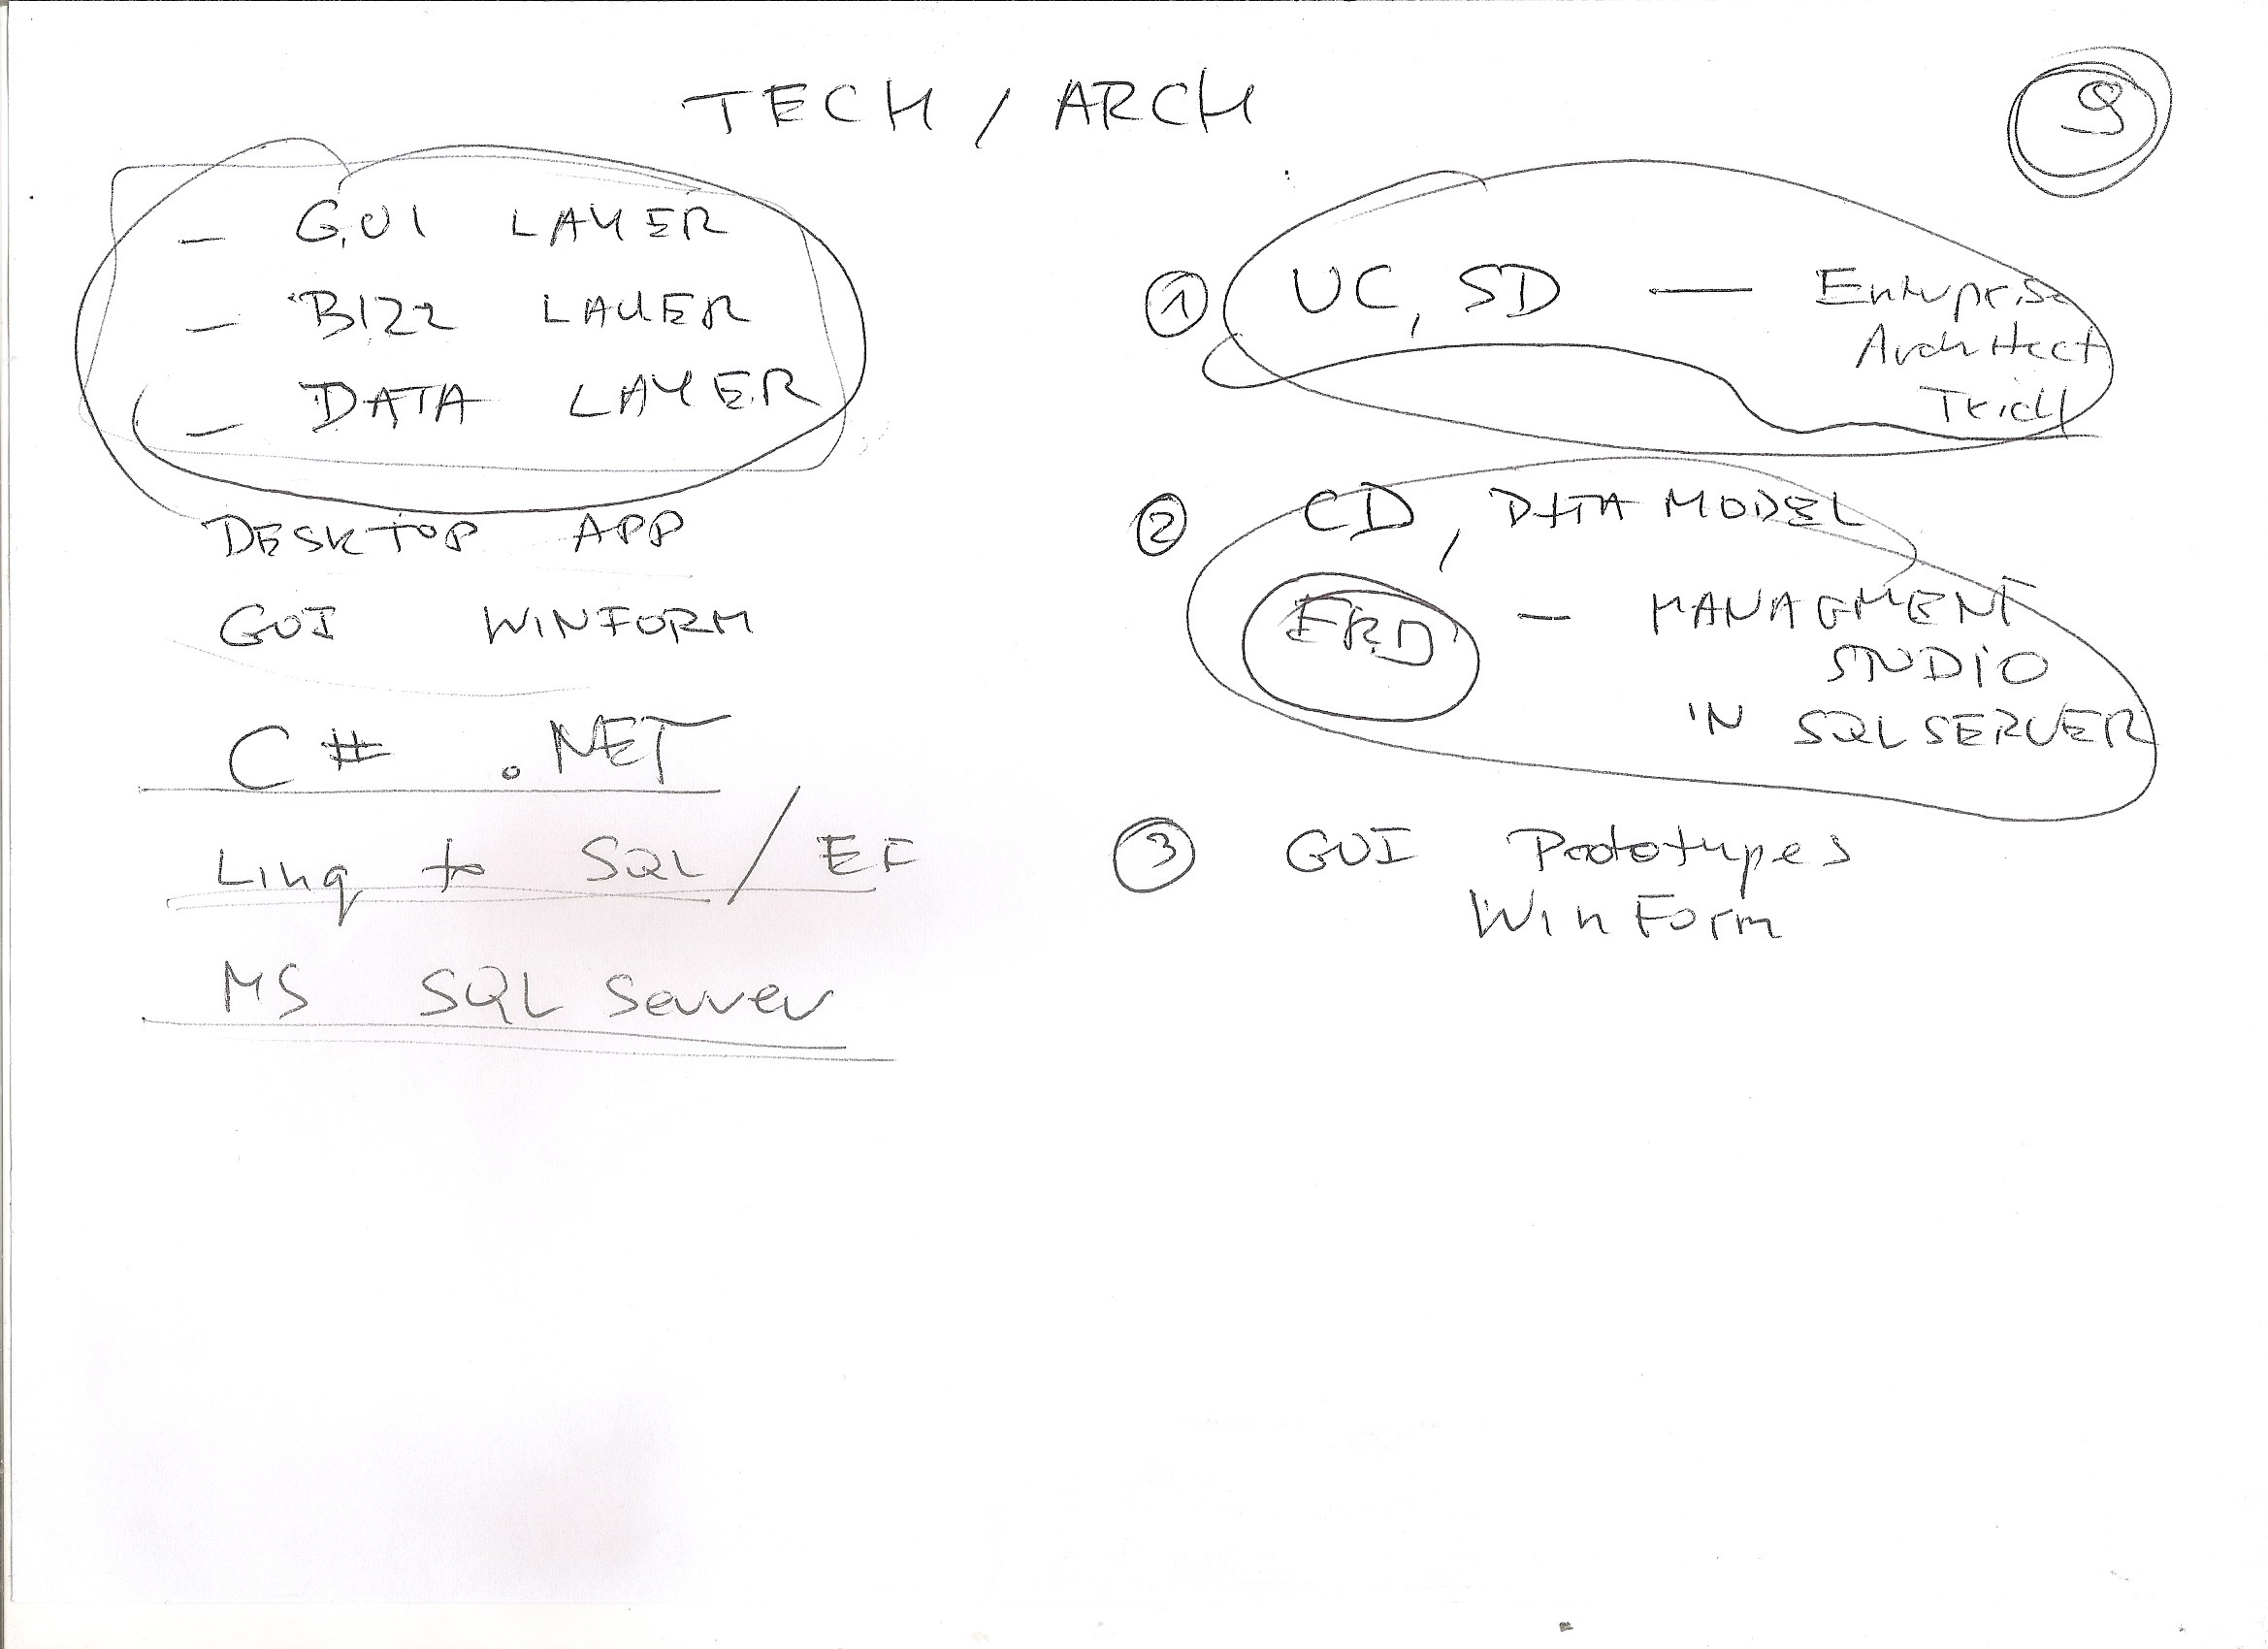 TECH / ARCH
9
- GUI LAYER
- BIZZ LAYER
- DATA LAYER
DESKTOP APP
GUI WINFORM
C# .NET
Linq to SQL / EF
MS SQL Server
1 UC, SD — Enterprise
Architect
2 CD, DATA MODEL
ERD — MANAGMENT
STUDIO
IN SQL SERVER
3 GUI Prototypes
WinForm